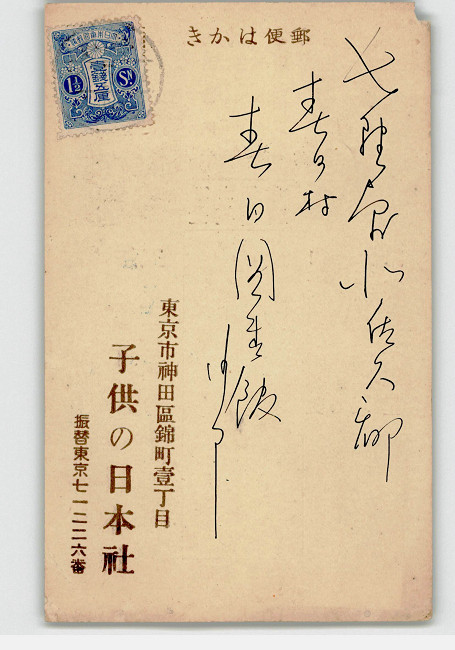 郵便はかき
大日本帝國郵便
壹錢五厘
1½ Sn.
長野縣北佐久郡
春日村
春日圖書館
御中
東京市神田區錦町壹丁目
子供の日本社
振替東京七一二二六番